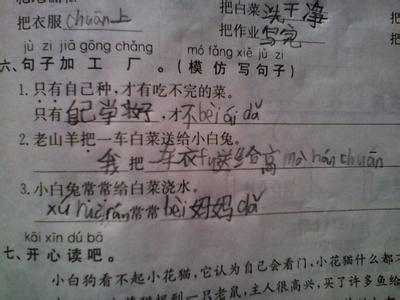 把衣服chuān上
把白菜洗干净
把作业写完
jù zi jiā gōng chǎng
mó fǎng xiě jù zi
六、句子加工厂。(模仿写句子)
1. 只有自己种，才有吃不完的菜。
只有自己学好，才不bèi ái dǎ
2. 老山羊把一车白菜送给小白兔。
我把一车衣fu送给高
3. 小白兔常常给白菜浇水。
常常bèi妈妈dǎ
kāi xīn dú bā
七、开心读吧。
小白狗看不起小花猫，它认为自己会看门，小花猫什么都不
捉到一只老鼠，主人很高兴，买了许多鱼给